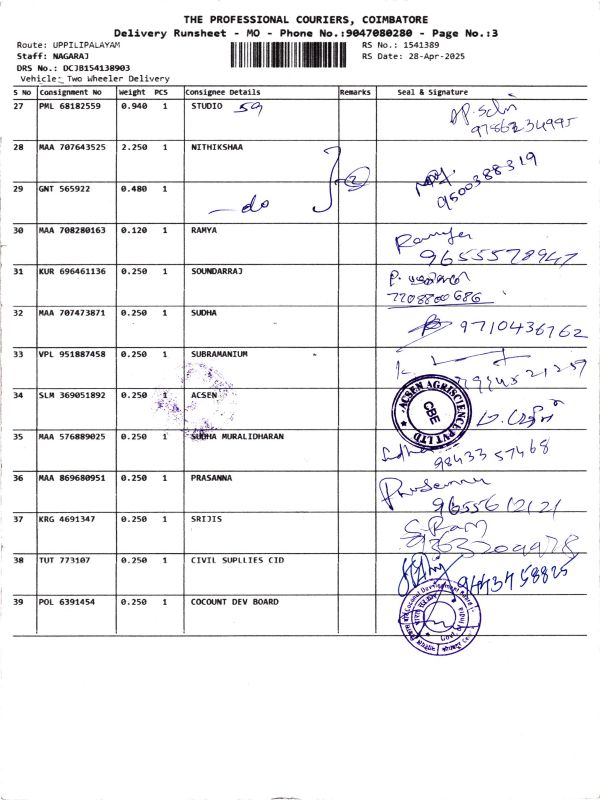 THE PROFESSIONAL COURIERS, COIMBATORE
Delivery Runsheet - MO - Phone No.:9047080280 - Page No.:3
Route: UPPILIPALAYAM RS No.: 1541389
Staff: NAGARAJ RS Date: 28-Apr-2025
DRS No.: DCJB154138903
Vehicle: Two Wheeler Delivery
S No Consignment No Weight PCS Consignee Details Remarks Seal & Signature
27 PML 68182559 0.940 1 STUDIO 59
28 MAA 707643525 2.250 1 NITHIKSHAA 9500388319
29 GNT 565922 0.480 1 do 2
30 MAA 708280163 0.120 1 RAMYA Ramya
9655578947
31 KUR 696461136 0.250 1 SOUNDARRAJ
7708800686
32 MAA 707473871 0.250 1 SUDHA 9710436762
33 VPL 951887458 0.250 1 SUBRAMANIUM
34 SLM 369051892 0.250 1 ACSEN
ACSEN AGRISCIENCE PVT LTD
CBE
35 MAA 576889025 0.250 1 SUDHA MURALIDHARAN Sudha
98433 57468
36 MAA 869680951 0.250 1 PRASANNA Prasanna
9655612121
37 KRG 4691347 0.250 1 SRIJIS S. Ram
38 TUT 773107 0.250 1 CIVIL SUPLLIES CID 9443458825
39 POL 6391454 0.250 1 COCOUNT DEV BOARD
Coconut Development Board
Govt. of India